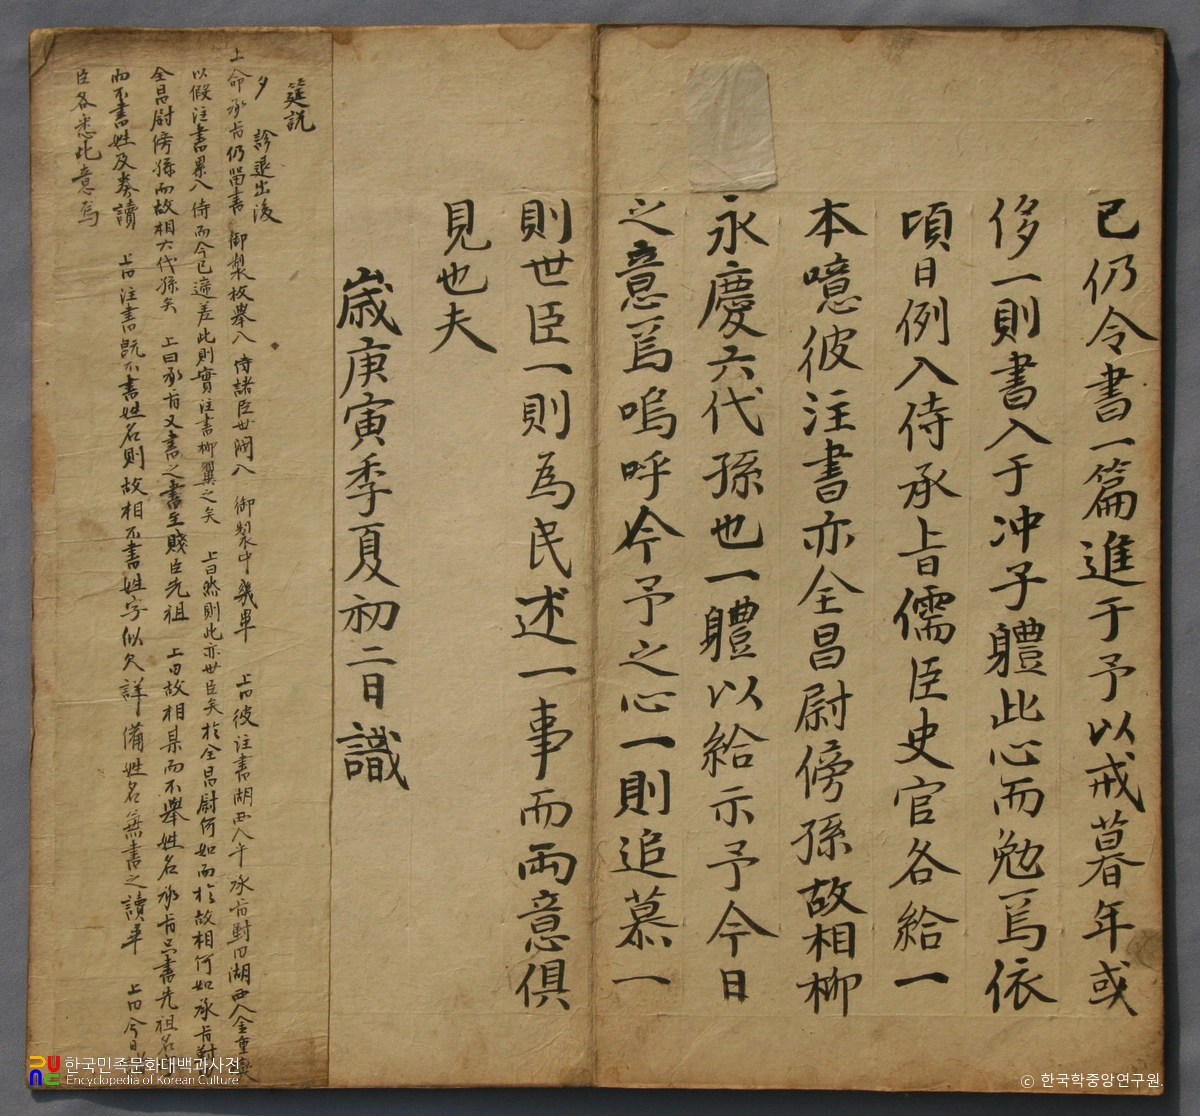 已仍令書一篇進于予以戒暮年或
侈一則書入于冲子軆此心而勉焉依
頃日例入侍承旨儒臣史官各給一
本噫彼注書亦全昌尉傍孫故相柳
永慶六代孫也一軆以給示予今日
之意焉嗚呼今予之心一則追慕一
則世臣一則為民述一事而兩意俱
見也夫
歲庚寅季夏初二日識
筵説
夕 診退出後
上命承旨仍留書 御製校舉入 侍諸臣 入 御製中 畢 上曰彼注書湖西人乎承旨對曰湖西人金重
以假注書累入 侍而今已遞差此則實注書柳翼之矣 上曰然則此亦世臣矣於全昌尉何如而於故相何如承旨對
全昌尉傍孫而故相六代孫矣 上曰承旨又書之書至賤臣先祖 上曰故相某而不舉姓名承旨只書先祖名
而不書姓及奏讀 上曰注書既不書姓名則故相不書姓字似欠詳備姓名無書之讀畢 上曰今日
臣各悉此意焉
한국민족문화대백과사전
Encyclopedia of Korean Culture
© 한국학중앙연구원.